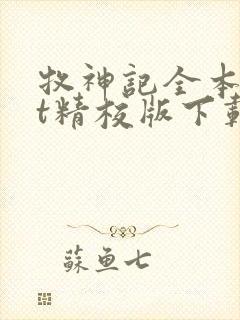 牧神記全本
t精校版下載
蘇魚七